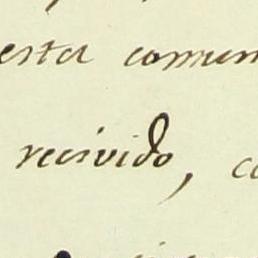 esta comun
recivido, c